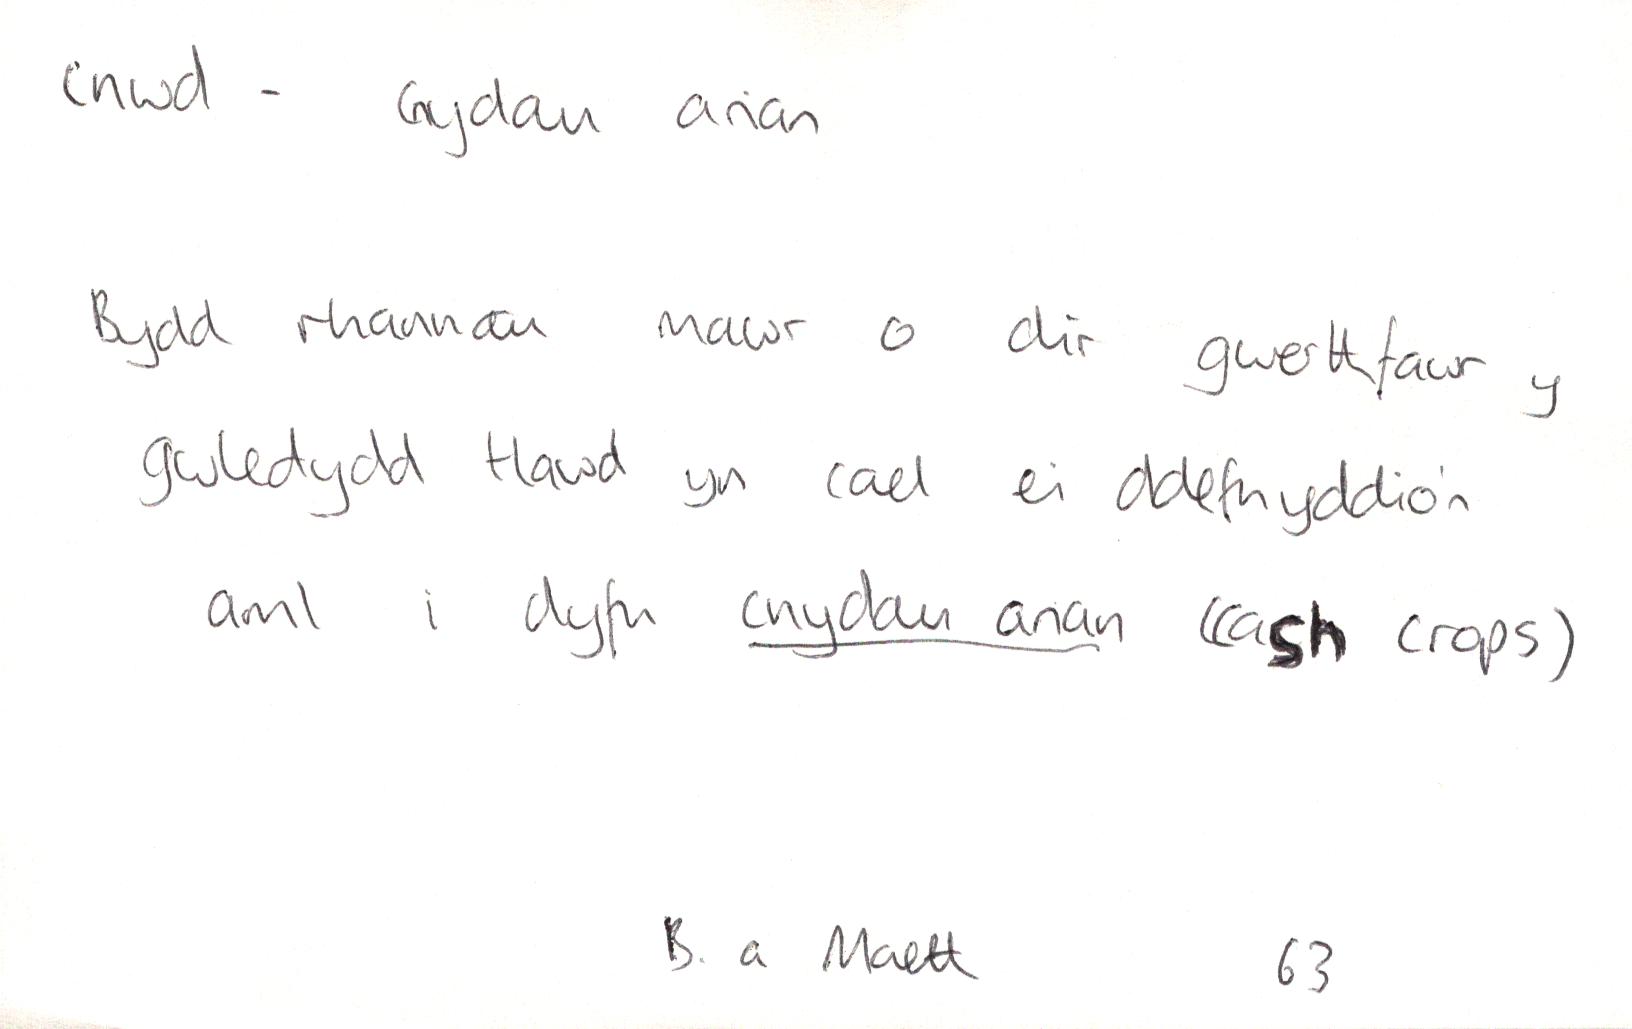 cnwd - Cnydau arian
Bydd rhannau mawr o dir gwerthfawr y
gwledydd tlawd yn cael ei ddefnyddio'n
aml i dyfu cnydau arian (cash crops)
B. a Maeth 63